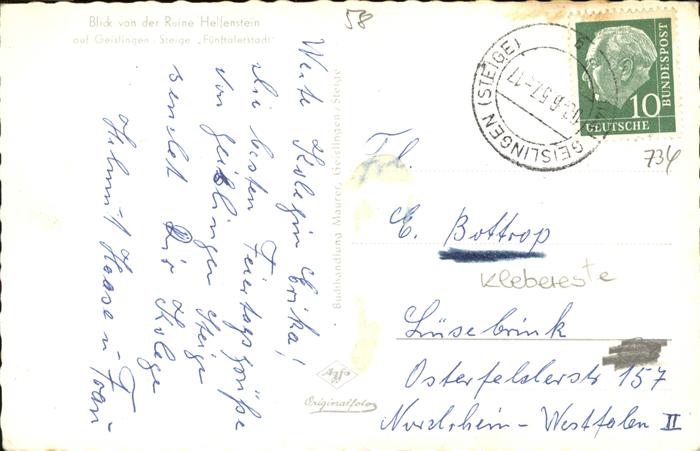 Blick von der Ruine Helfenstein
auf Geislingen - Steige „Fünftälerstadt"
58
Werte Kolegin Erika!
Die besten Feiertagsgrüße
von Geislingen Steige
sendet Dir Kolege
Helmut Haase u.
Buchhandlung Maurer, Geislingen / Steige
Agfa
Originalfoto
GEISLINGEN (STEIGE)
DEUTSCHE
BUNDESPOST
10
734
Frl.
E. Bottrop
Klebereste
Lüsebrink
Osterfelderstr 157
Nordrhein - Westfalen II